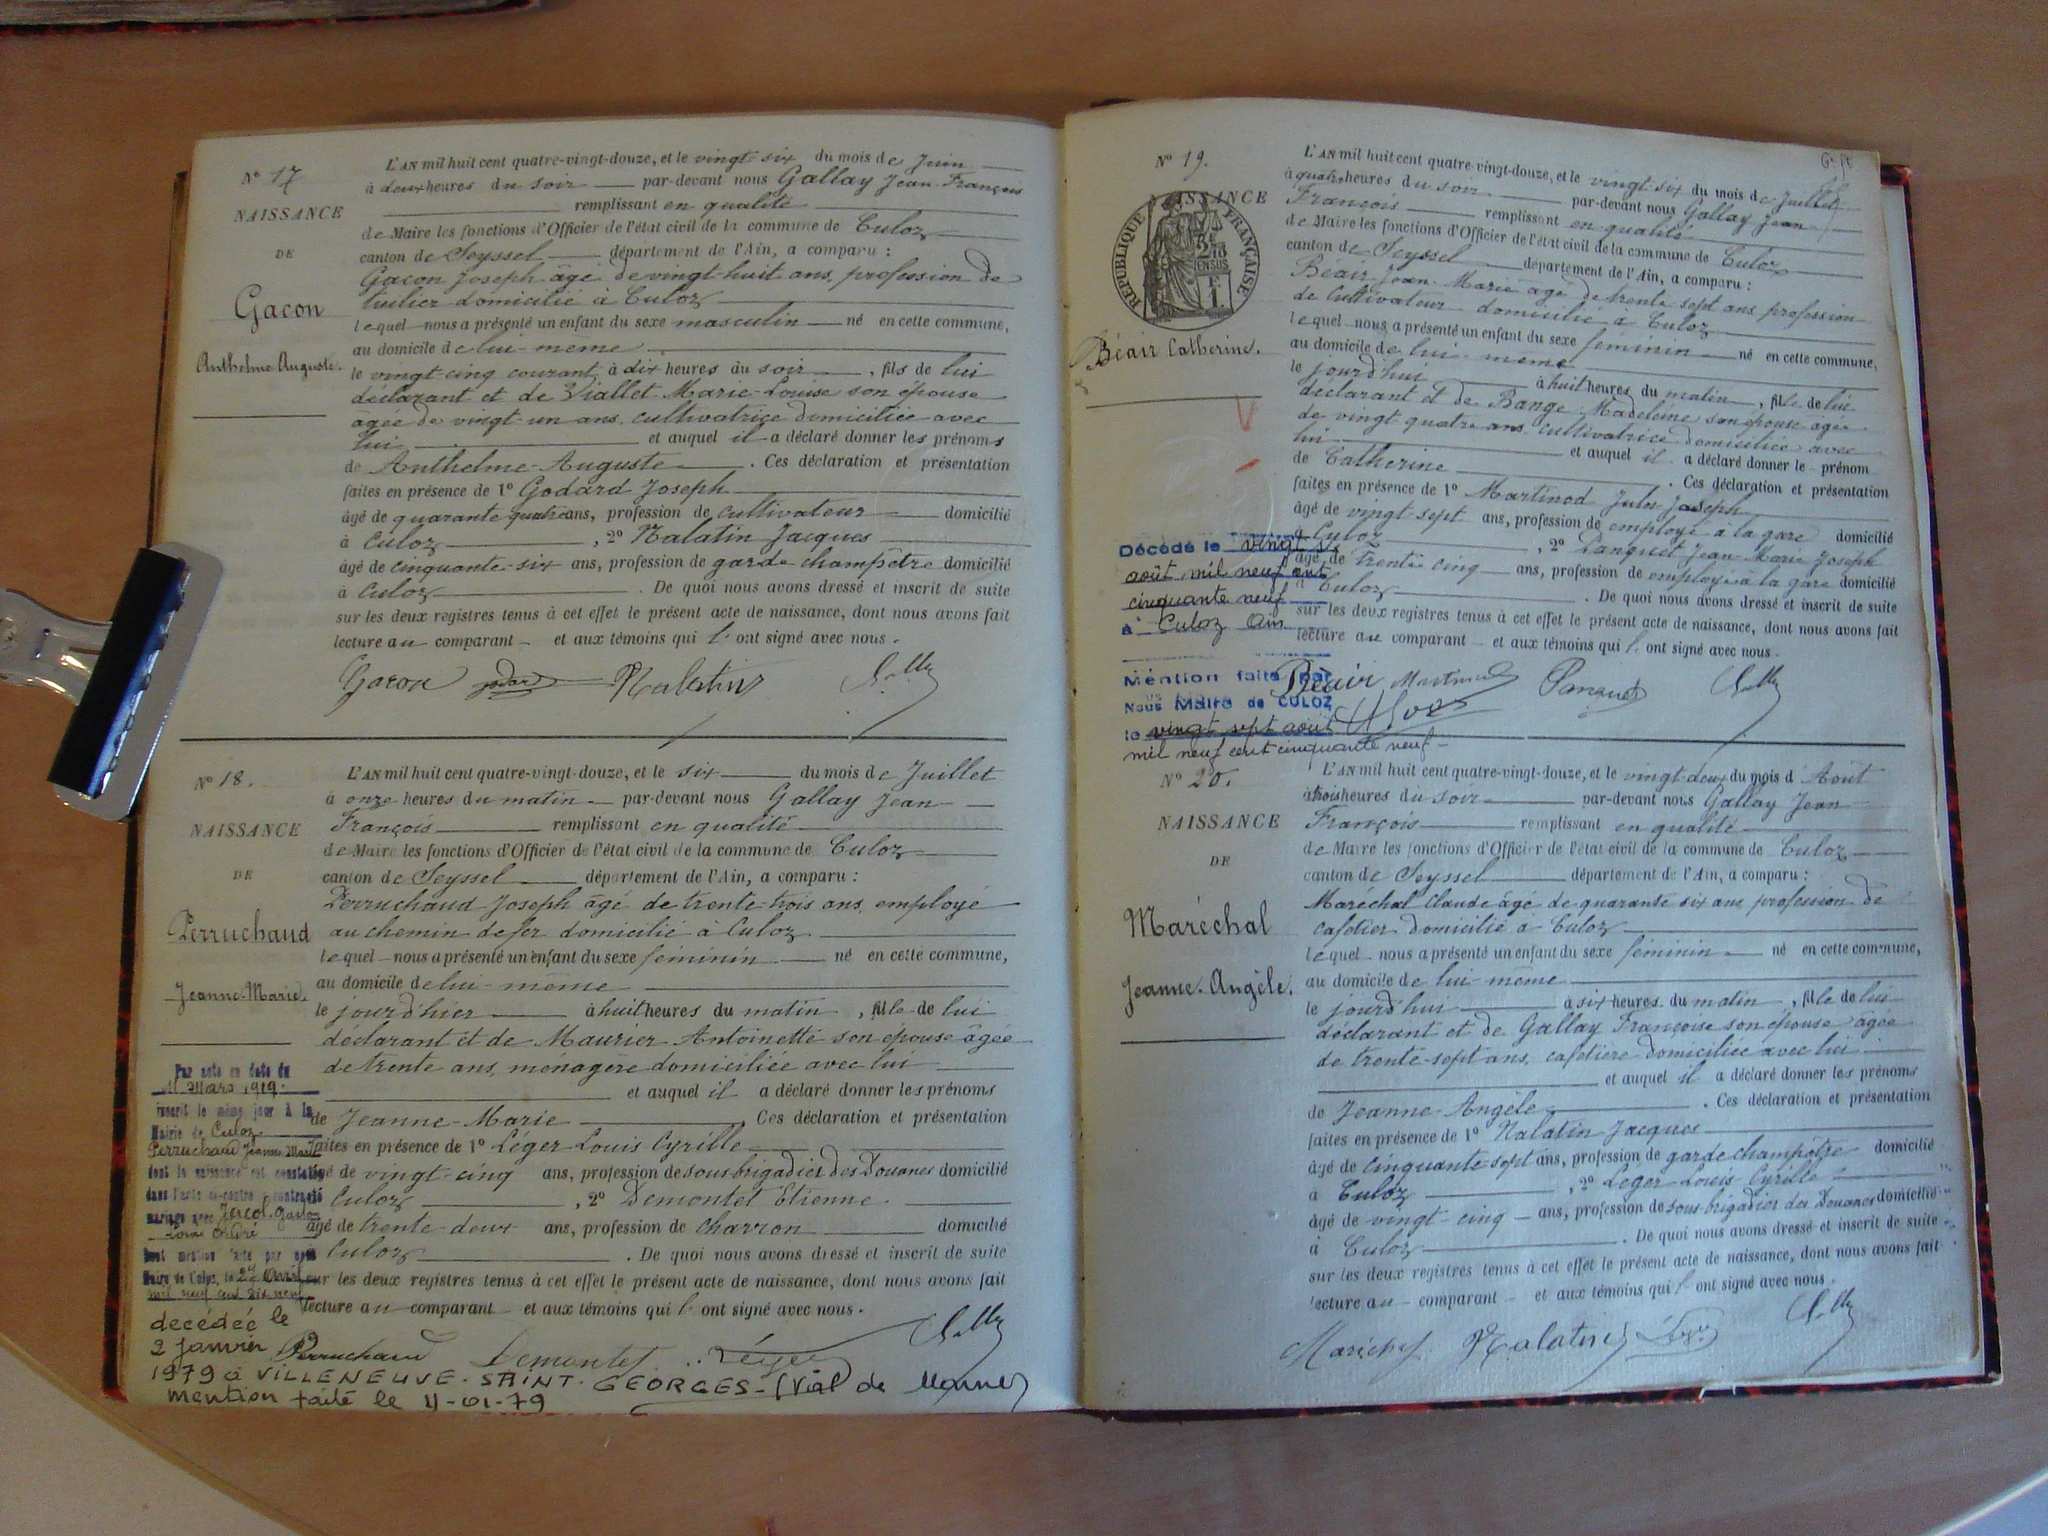 N° 17
NAISSANCE
DE
Gacon
Anthelme Auguste.
L'AN mil huit cent quatre-vingt-douze, et le vingt-six du mois de Juin
à deux heures du soir par-devant nous Gallay Jean-François
remplissant en qualité
de Maire les fonctions d'Officier de l'état civil de la commune de Culoz
canton de Seyssel département de l'Ain, a comparu :
Gacon Joseph âgé de vingt-huit ans, profession de
tuilier domicilié à Culoz
lequel nous a présenté un enfant du sexe masculin né en cette commune,
au domicile de lui-même
le vingt-cinq courant à dix heures du soir, fils de lui
déclarant et de Viallet Marie-Louise son épouse
âgée de vingt-un ans, cultivatrice domiciliée avec
lui et auquel il a déclaré donner les prénoms
de Anthelme-Auguste. Ces déclaration et présentation
faites en présence de 1° Godard Joseph
âgé de quarante quatre ans, profession de cultivateur domicilié
à Culoz, 2° Nalatin Jacques
âgé de cinquante-six ans, profession de garde champêtre domicilié
à Culoz. De quoi nous avons dressé et inscrit de suite
sur les deux registres tenus à cet effet le présent acte de naissance, dont nous avons fait
lecture au comparant et aux témoins qui l'ont signé avec nous.
Gacon Nalatin
N° 18.
NAISSANCE
DE
Perruchaud
Jeanne-Marie.
L'AN mil huit cent quatre-vingt-douze, et le six du mois de Juillet
à onze heures du matin par-devant nous Gallay Jean
François remplissant en qualité
de Maire les fonctions d'Officier de l'état civil de la commune de Culoz
canton de Seyssel département de l'Ain, a comparu :
Perruchaud Joseph âgé de trente-trois ans, employé
au chemin de fer domicilié à Culoz
lequel nous a présenté un enfant du sexe féminin né en cette commune,
au domicile de lui-même
le jourd'hier à huit heures du matin, fille de lui
déclarant et de Maurier Antoinette son épouse âgée
de trente ans, ménagère domiciliée avec lui
et auquel il a déclaré donner les prénoms
de Jeanne-Marie Ces déclaration et présentation
faites en présence de 1° Léger Louis Cyrille
âgé de vingt-cinq ans, profession de sous-brigadier des Douanes domicilié
Culoz, 2° Demontet Etienne
âgé de trente deux ans, profession de charron domicilié
Culoz. De quoi nous avons dressé et inscrit de suite
sur les deux registres tenus à cet effet le présent acte de naissance, dont nous avons fait
lecture au comparant et aux témoins qui l'ont signé avec nous.
Perruchaud Demontet Léger
Par acte en date du
11 Mars 1919.
inscrit le même jour à la
Mairie de Culoz
Perruchaud Jeanne Marie
dont la naissance est constatée
dans l'acte ci-contre a contracté
mariage avec
Dont mention faite par nous
Maire de Culoz, le Avril
mil neuf cent dix neuf
decédée le
2 janvier
1979 à VILLENEUVE-SAINT-GEORGES-(Val de Marne)
mention faite le 11-01-79
N° 19.
NAISSANCE
RÉPUBLIQUE FRANÇAISE
Béair Catherine.
L'AN mil huit cent quatre-vingt-douze, et le vingt-six du mois de Juillet
à quatre heures du soir par-devant nous Gallay Jean
François remplissant en qualité
de Maire les fonctions d'Officier de l'état civil de la commune de Culoz
canton de Seyssel département de l'Ain, a comparu :
Béair Jean-Marie âgé de trente sept ans profession
de Cultivateur domicilié à Culoz
lequel nous a présenté un enfant du sexe féminin né en cette commune,
au domicile de lui-même
le jourd'hui à huit heures du matin, fille de lui
déclarant et de Bange Madeleine son épouse âgée
de vingt quatre ans cultivatrice domiciliée avec
lui et auquel il a déclaré donner le prénom
de Catherine. Ces déclaration et présentation
faites en présence de 1° Martinod Jules Joseph
âgé de vingt sept ans, profession de employé à la gare domicilié
à Culoz, 2° Panquet Jean-Marie Joseph
âgé de trente cinq ans, profession de employé à la gare domicilié
à Culoz. De quoi nous avons dressé et inscrit de suite
sur les deux registres tenus à cet effet le présent acte de naissance, dont nous avons fait
lecture au comparant et aux témoins qui l'ont signé avec nous.
Béair Martinod Panquet
Décédé le vingt six
août mil neuf cent
cinquante neuf
à Culoz Ain
Mention faite par
Nous Maire de CULOZ
le vingt sept août
mil neuf cent cinquante neuf
N° 20.
NAISSANCE
DE
Maréchal
Jeanne-Angèle.
L'AN mil huit cent quatre-vingt-douze, et le vingt-deux du mois d'Août
à trois heures du soir par-devant nous Gallay Jean
François remplissant en qualité
de Maire les fonctions d'Officier de l'état civil de la commune de Culoz
canton de Seyssel département de l'Ain, a comparu :
Maréchal Claude âgé de quarante six ans profession de
cafetier domicilié à Culoz
lequel nous a présenté un enfant du sexe féminin né en cette commune,
au domicile de lui-même
le jourd'hui à six heures du matin, fille de lui
déclarant et de Gallay Françoise son épouse âgée
de trente-sept ans, cafetière domiciliée avec lui
et auquel il a déclaré donner les prénoms
de Jeanne-Angèle. Ces déclaration et présentation
faites en présence de 1° Nalatin Jacques
âgé de cinquante-sept ans, profession de garde champêtre domicilié
à Culoz, 2° Léger Louis Cyrille
âgé de vingt-cinq ans, profession de sous-brigadier des Douanes domicilié
à Culoz. De quoi nous avons dressé et inscrit de suite
sur les deux registres tenus à cet effet le présent acte de naissance, dont nous avons fait
lecture au comparant et aux témoins qui l'ont signé avec nous.
Maréchal Nalatin Léger